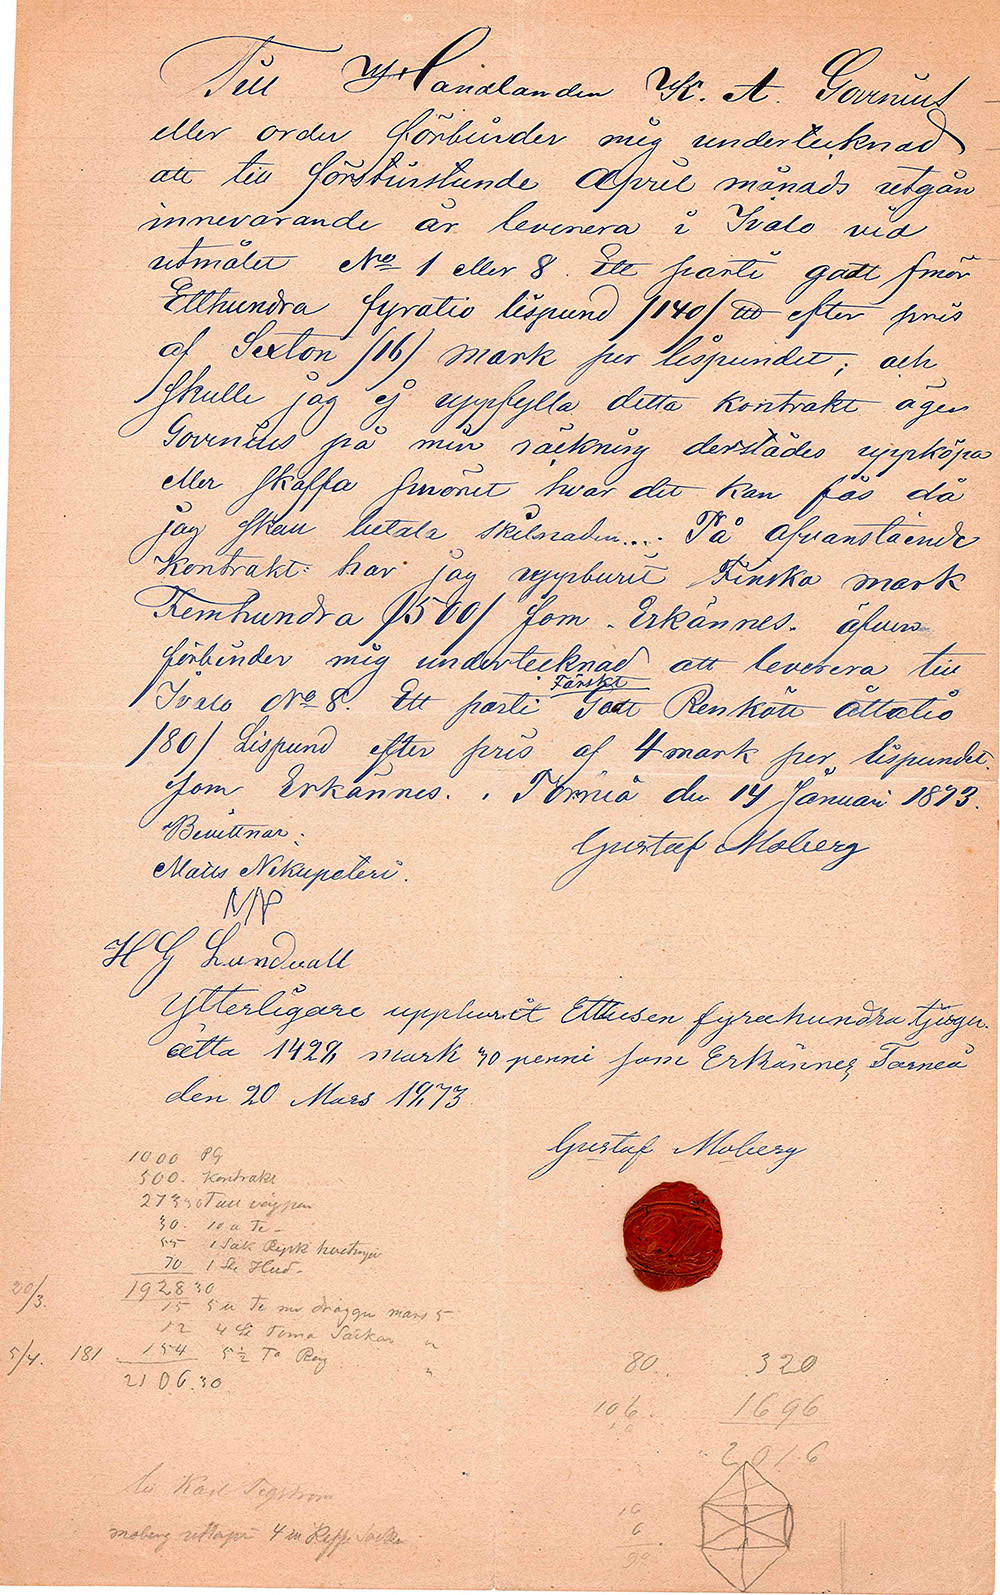 Till Handlanden K. A. Govenius
eller order förbinder mig undertecknad
att till förstkunstunde April månads utgån
innevarande år leverera i Ivalo vid
utmålet No 1 eller 8. Ett parti godt smör
Etthundra fyratio lispund /140/ efter pris
af Sexton /16/ mark per lispundet; och
skulle jag ej uppfylla detta kontrakt ägen
Govenius på min räkning derstädes uppköpa
eller skaffa smöret hvar det kan fås då
jag skall betala skilnaden.... På ofvanstående
Kontrakt har jag uppburit Finska mark
Femhundra /500/ som Erkännes. äfven
förbinder mig undertecknad att leverera till
Färskt
Ivalo No 8. Ett parti Godt Renkött åttatio
/80/ Lispund efter pris af 4 mark per lispundet.
som Erkännes. Torneå den 14 Januari 1873.
Bevittnar:
Gustaf Moberg
Matts Nikupeteri.
H G Lundvall
Ytterligare uppburit Ettusen fyrahundra tjugu
åtta 1428 mark 30 penni som Erkännes Torneå
den 20 Mars 1873
Gustaf Moberg
1000 PG
500. Kontrakt
273 30 Tull
30. 10 u Te
55 1 Säk
70 1 Hud.
20/3. 1928 30
15 5 u Te mars 5
12 4 Toma Säckar "
5/4. 181 154 5½ To Råg "
2106.30
80. 320
106. 1696
16
2016
till Karl Tegström
moberg 4
16
6